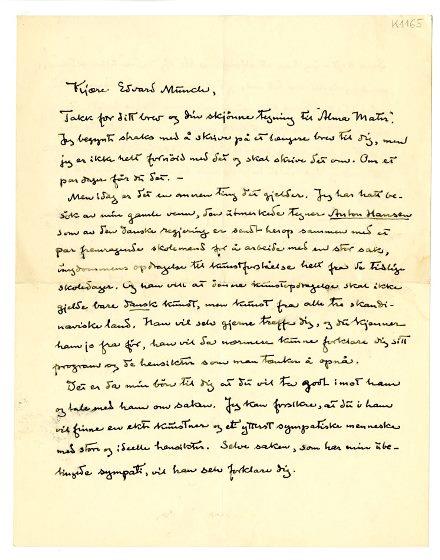 K1165
Kjære Edvard Munch,
Takk for ditt brev og din skjønne tegning til "Alma Mater".
Jeg begynte straks med å skrive på et længere brev til dig, men
jeg er ikke helt fornøid med det og skal skrive det om. Om et
par dager får du det. —
Men idag er det en annen ting det gjelder. Jeg har hatt be-
søk av min gamle venn, den utmerkede tegner Anton Hansen
som av den danske regjering er sendt herop sammen med et
par fremragende skolemenn for å arbeide med en stor sak,
ungdommens opdragelse til kunstforståelse helt fra de tidlige
skoledager. Og han vill at denne kunstopdragelse skal ikke
gjelde bare dansk kunst, men kunst fra alle tre skandi-
naviske land. Han vil selv gjerne treffe dig, og du kjenner
ham jo fra før, han vil da nærmere kunne forklare dig sitt
program og de hensikter som man tenker å opnå.
Det er da min bön til dig at du vil ta godt imot ham
og tale med ham om saken. Jeg kan forsikre, at du i ham
vil finne en ekte kunstner og et ytterst sympatisk menneske
med store og ideelle hensikter. Selve saken, som har min ube-
tingede sympati, vil han selv forklare dig.